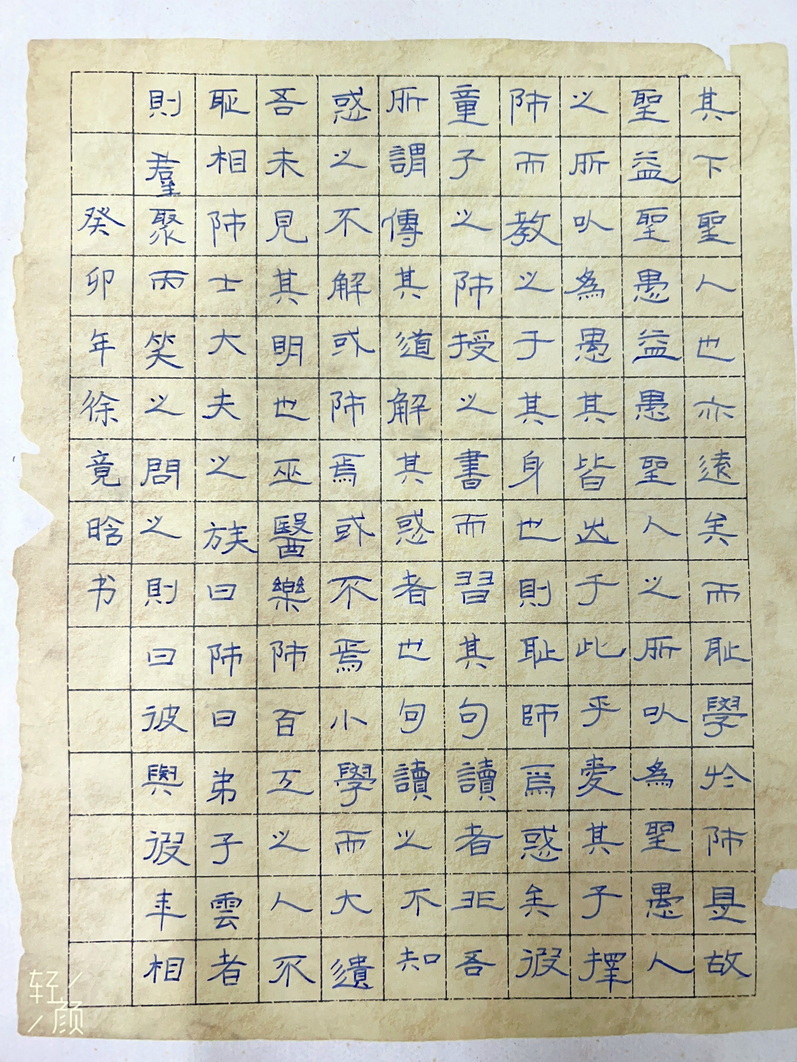 其下聖人也亦遠矣而耻學於師是故
聖益聖愚益愚聖人之所以為聖愚人
之所以為愚其皆出于此乎愛其子擇
師而教之于其身也則耻師焉惑矣彼
童子之師授之書而習其句讀者非吾
所謂傳其道解其惑者也句讀之不知
惑之不解或師焉或不焉小學而大遺
吾未見其明也巫醫樂師百工之人不
耻相師士大夫之族曰師曰弟子雲者
則羣聚而笑之問之則曰彼與彼年相
癸卯年徐竟晗书
轻颜